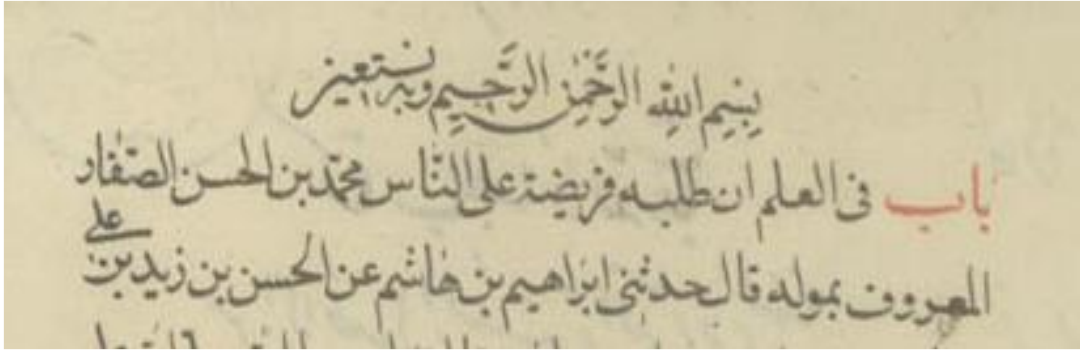 بِسْمِ اللهِ الرَّحْمٰنِ الرَّحِيمِ وَبِهِ نَسْتَعِين
باب في العلم ان طلبه فريضة على النّاس محمّد بن الحسن الصّفار
المعروف بمموله قال حدثنى ابراهيم بن هاشم عن الحسن بن زيد بن على